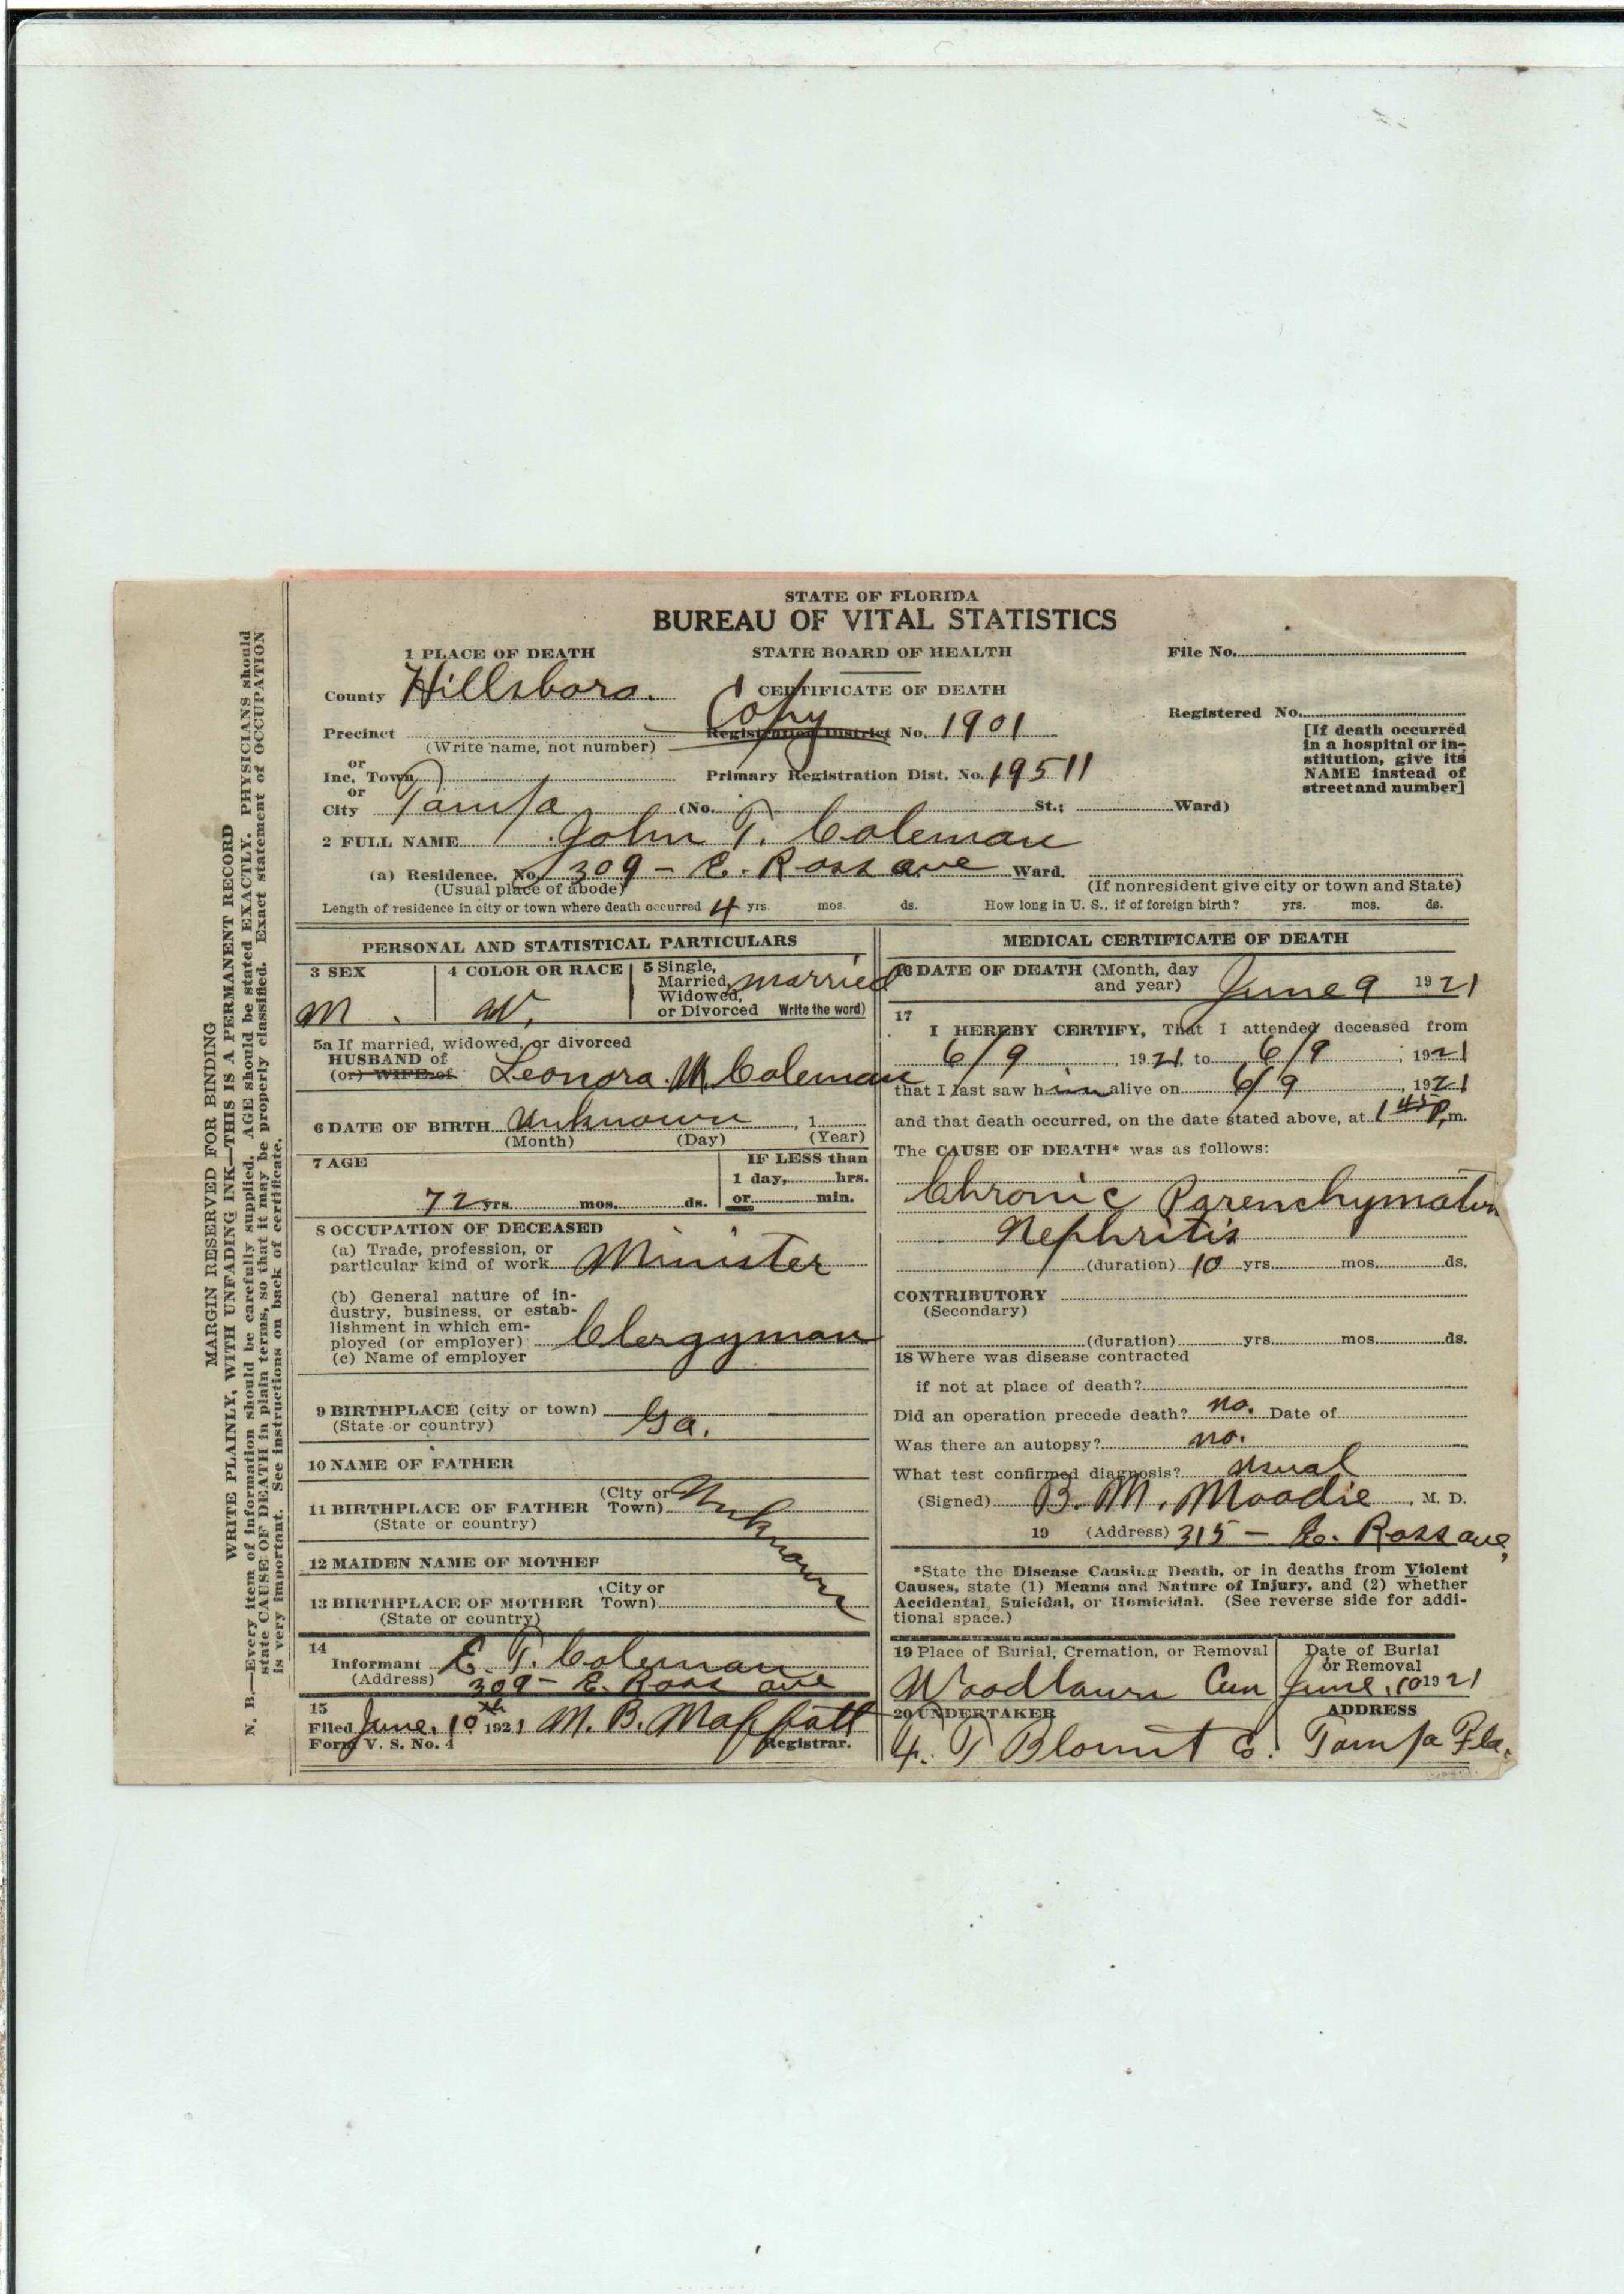 STATE OF FLORIDA
BUREAU OF VITAL STATISTICS
STATE BOARD OF HEALTH
CERTIFICATE OF DEATH
Copy
1 PLACE OF DEATH
County Hillsboro.
Precinct
(Write name, not number)
or
Inc. Town
or
City Tampa (No. St.; Ward)
Registration District No. 1901
Primary Registration Dist. No. 19511
File No.
Registered No.
[If death occurred
in a hospital or in-
stitution, give its
NAME instead of
street and number]
2 FULL NAME John T. Coleman
(a) Residence. No. 309 - E. Ross ave Ward.
(Usual place of abode) (If nonresident give city or town and State)
Length of residence in city or town where death occurred 4 yrs. mos. ds. How long in U. S., if of foreign birth? yrs. mos. ds.
PERSONAL AND STATISTICAL PARTICULARS
3 SEX
M.
4 COLOR OR RACE
W.
5 Single,
Married,
Widowed,
or Divorced Write the word)
married
5a If married, widowed, or divorced
HUSBAND of
(or) WIFE of
Leonora M Coleman
6 DATE OF BIRTH Unknown, 1
(Month) (Day) (Year)
7 AGE
72 yrs. mos. ds.
IF LESS than
1 day, hrs.
or min.
8 OCCUPATION OF DECEASED
(a) Trade, profession, or
particular kind of work Minister
(b) General nature of in-
dustry, business, or estab-
lishment in which em-
ployed (or employer) Clergyman
(c) Name of employer
9 BIRTHPLACE (city or town)
(State or country) Ga.
10 NAME OF FATHER
11 BIRTHPLACE OF FATHER (City or Town)
(State or country)
Unknown
12 MAIDEN NAME OF MOTHER
13 BIRTHPLACE OF MOTHER (City or Town)
(State or country)
14
Informant E. T. Coleman
(Address) 309 - E. Ross ave
15
Filed June, 10th 1921 M. B. Maffatt
Form V. S. No. 4 Registrar.
MEDICAL CERTIFICATE OF DEATH
16 DATE OF DEATH (Month, day
and year) June 9 1921
17
I HEREBY CERTIFY, That I attended deceased from
6/9, 1921, to 6/9, 1921
that I last saw him alive on 6/9, 1921
and that death occurred, on the date stated above, at 1 45 P. m.
The CAUSE OF DEATH* was as follows:
Chronic Parenchymatous
Nephritis
(duration) 10 yrs. mos. ds.
CONTRIBUTORY
(Secondary)
(duration) yrs. mos. ds.
18 Where was disease contracted
if not at place of death?
Did an operation precede death? no. Date of
Was there an autopsy? no.
What test confirmed diagnosis? usual
(Signed) B. M. Moodie, M. D.
19 (Address) 315 - E. Ross ave,
*State the Disease Causing Death, or in deaths from Violent
Causes, state (1) Means and Nature of Injury, and (2) whether
Accidental, Suicidal, or Homicidal. (See reverse side for addi-
tional space.)
19 Place of Burial, Cremation, or Removal
Woodlawn Cem
Date of Burial
or Removal
June, 10 1921
20 UNDERTAKER
T Blount Co.
ADDRESS
Tampa Fla.
MARGIN RESERVED FOR BINDING
WRITE PLAINLY, WITH UNFADING INK—THIS IS A PERMANENT RECORD
N. B.—Every item of information should be carefully supplied. AGE should be stated EXACTLY. PHYSICIANS should
state CAUSE OF DEATH in plain terms, so that it may be properly classified. Exact statement of OCCUPATION
is very important. See instructions on back of certificate.